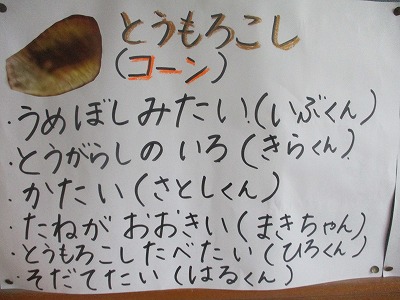 とうもろこし
(コーン)
・うめぼしみたい!(いぶくん)
・とうがらしのいろ(きらくん)
・かたい(さとしくん)
・たねがおおきい(まきちゃん)
・とうもろこしたべたい(ひろくん)
・そだてたい(はるくん)